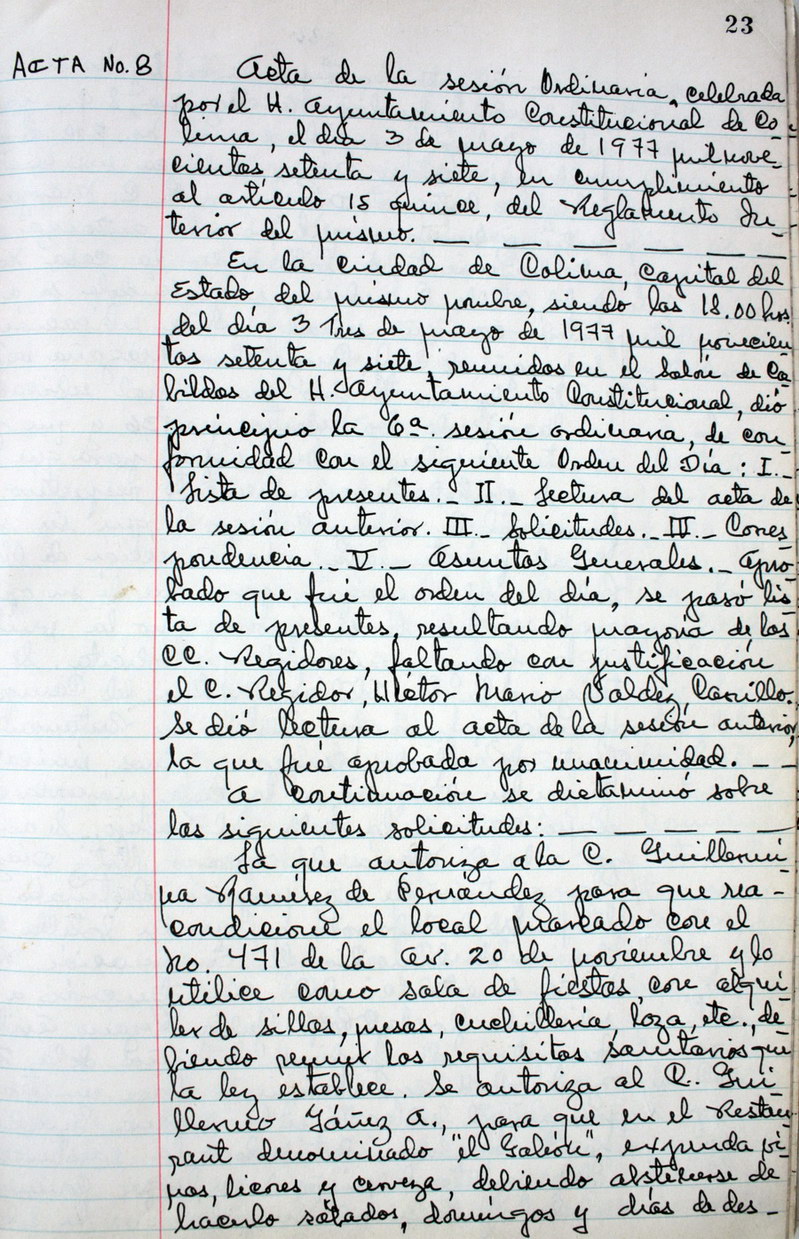 23
ACTA No. 8
Acta de la sesión Ordinaria, celebrada
por el H. Ayuntamiento Constitucional de Co-
lima, el día 3 de mayo de 1977 mil nove-
cientos setenta y siete, en cumplimiento
al artículo 15 quince, del Reglamento In-
terior del mismo. — — — — — —
En la ciudad de Colima, Capital del
Estado del mismo nombre, siendo las 18.00 hrs.
del día 3 Tres de mayo de 1977 mil novecien
tos setenta y siete, reunidos en el Salón de Ca
bildos del H. Ayuntamiento Constitucional, dió
principio la 6a. sesión ordinaria, de con
formidad con el siguiente Orden del Día: I.-
Lista de presentes.- II.- Lectura del acta de
la sesión anterior. III.- Solicitudes.- IV.- Corres
pondencia.- V.- Asuntos Generales.- Apro
bado que fué el orden del día, se pasó lis-
ta de presentes, resultando mayoría de los
CC. Regidores, faltando con justificación
el C. Regidor, Héctor Mario Valdez Carrillo.
Se dió lectura al acta de la sesión anterior,
la que fué aprobada por unanimidad. — —
A continuación se dictaminó sobre
las siguientes solicitudes: — — — — —
La que autoriza a la C. Guillermi-
na Ramírez de Fernández para que rea-
condicione el local marcado con el
No. 471 de la av. 20 de noviembre y lo
utilice como sala de fiestas, con alqui-
ler de sillas, mesas, cuchillería, loza, etc., de-
biendo reunir los requisitos sanitarios que
la ley establece. Se autoriza al C. Gui-
llermo Yáñez A., para que en el Restau-
rant denominado "el Galeón", expenda vi-
nos, licores y cerveza, debiendo abstenerse de
hacerlo sábados, domingos y días de des-